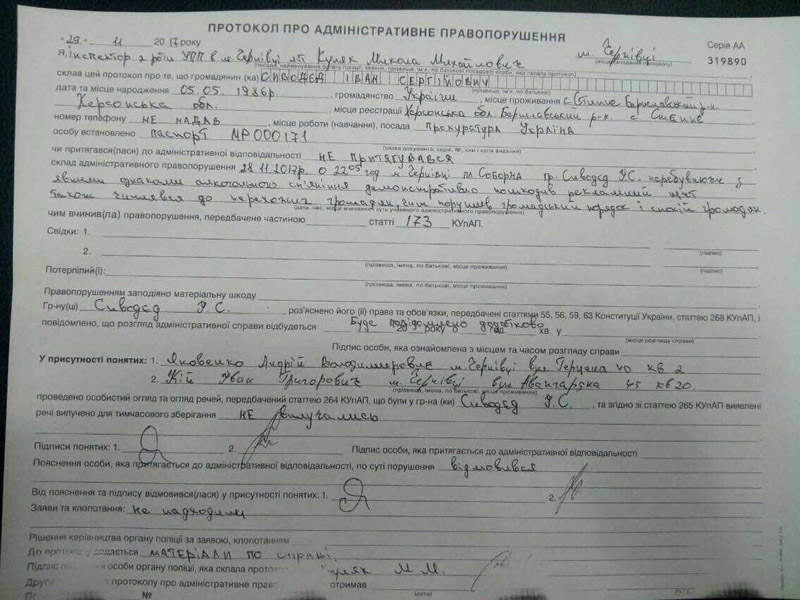 ПРОТОКОЛ ПРО АДМІНІСТРАТИВНЕ ПРАВОПОРУШЕННЯ
"29" 11 2017 року м. Чернівці Серія АА
Я, інспектор роти УПП в м. Чернівці Куляк Микола Михайлович 319890
склав цей протокол про те, що громадянин (ка) СИВОДЕД ІВАН СЕРГІЙОВИЧ
дата та місце народження 05.05.1986р. , громадянство України , місце проживання
Херсонська обл. , місце реєстрації Херсонська обл. Бериславський р-н. с
номер телефону НЕ НАДАВ , місце роботи (навчання), посада Прокуратура Україна
особу встановлено паспорт МР000171
(назва документа, серія, №, ким і коли виданий)
чи притягався(лась) до адміністративної відповідальності НЕ ПРИТЯГУВАВСЯ
склад адміністративного правопорушення 28.11.2017р. о 22 05 м Чернівці пл. Соборна гр. Сиводєд І.С. перебуваючи з
явними ознаками алкогольного сп'яніння демонстративно пошкодив рекламний щит
також чіплявся до перехожих громадян, чим порушив громадський порядок і спокій громадян.
чим вчинив(ла) правопорушення, передбачене частиною статті 173 КУпАП.
Свідки: 1.
(прізвище, імена, по батькові, місце проживання) (підпис)
2.
(підпис)
Потерпілий(і):
(прізвище, імена, по батькові, місце проживання)
Правопорушенням заподіяно матеріальну шкоду
Гр-ну(ці) Сиводєд І.С. роз'яснено його (її) права та обов'язки, передбачені статтями 55, 56, 59, 63 Конституції України, статтею 268 КУпАП, і
повідомлено, що розгляд адміністративної справи відбудеться Буде повідомлено додатково 20 року хв. у
(місце розгляду справи)
Підпис особи, яка ознайомлена з місцем та часом розгляду справи
У присутності понятих: 1. Яковенко Андрій Володимирович м. Чернівці вул Герцена 40 кв 2
2. Кій Іван Григорович м. Чернівці вул Авангарська 45 кв 20.
(прізвище, імена, по батькові, місце проживання)
проведено особистий огляд та огляд речей, передбачений статтею 264 КУпАП, що були у гр-на (ки) Сиводєд І.С. , та згідно зі статтею 265 КУпАП виявлені
речі вилучено для тимчасового зберігання НЕ вилучались
Підписи понятих: 1. 2. Підпис особи, яка притягається до адміністративної відповідальності
Пояснення особи, яка притягається до адміністративної відповідальності, по суті порушення відмовився
Від пояснення та підпису відмовився(лася) у присутності понятих: 1. 2.
Заяви та клопотання: не надходили
Рішення керівництва органу поліції за заявою, клопотанням
До протоколу додається МАТЕРІАЛИ ПО СПРАВІ
Підпис посадової особи органу поліції, яка склала протокол Куляк М.М.
протоколу про адміністративне отримав
(дата)
№